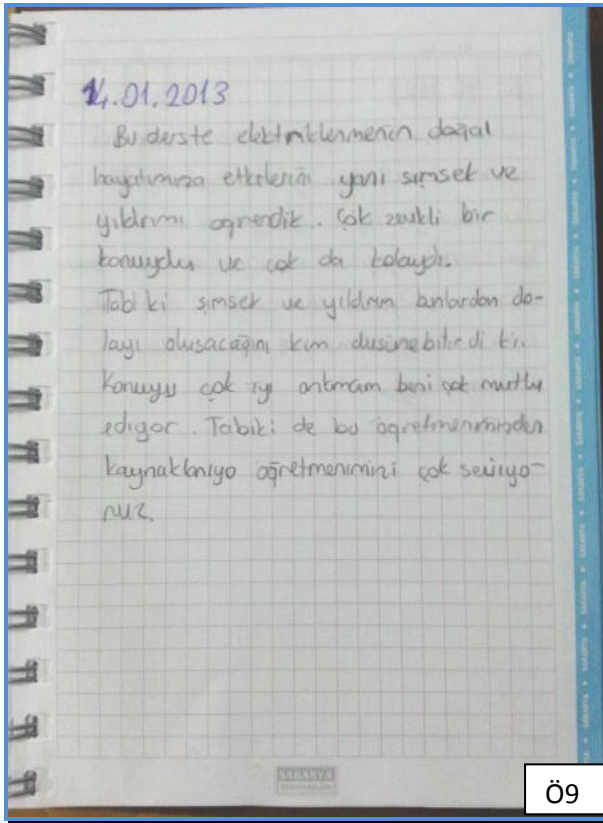 14.01.2013
Bu derste elektriklenmenin doğal
hayatımıza etkilerini yani şimşek ve
yıldırımı öğrendik. Çok zevkli bir
konuydu ve çok da kolaydı.
Tabi ki şimşek ve yıldırım bunlardan do-
layı oluşacağını kim düşünebilirdi ki.
Konuyu çok iyi anlamam beni çok mutlu
ediyor. Tabiki de bu öğretmenimizden
kaynaklanıyo öğretmenimizi çok seviyo-
ruz.
SAKARYA
Ö9